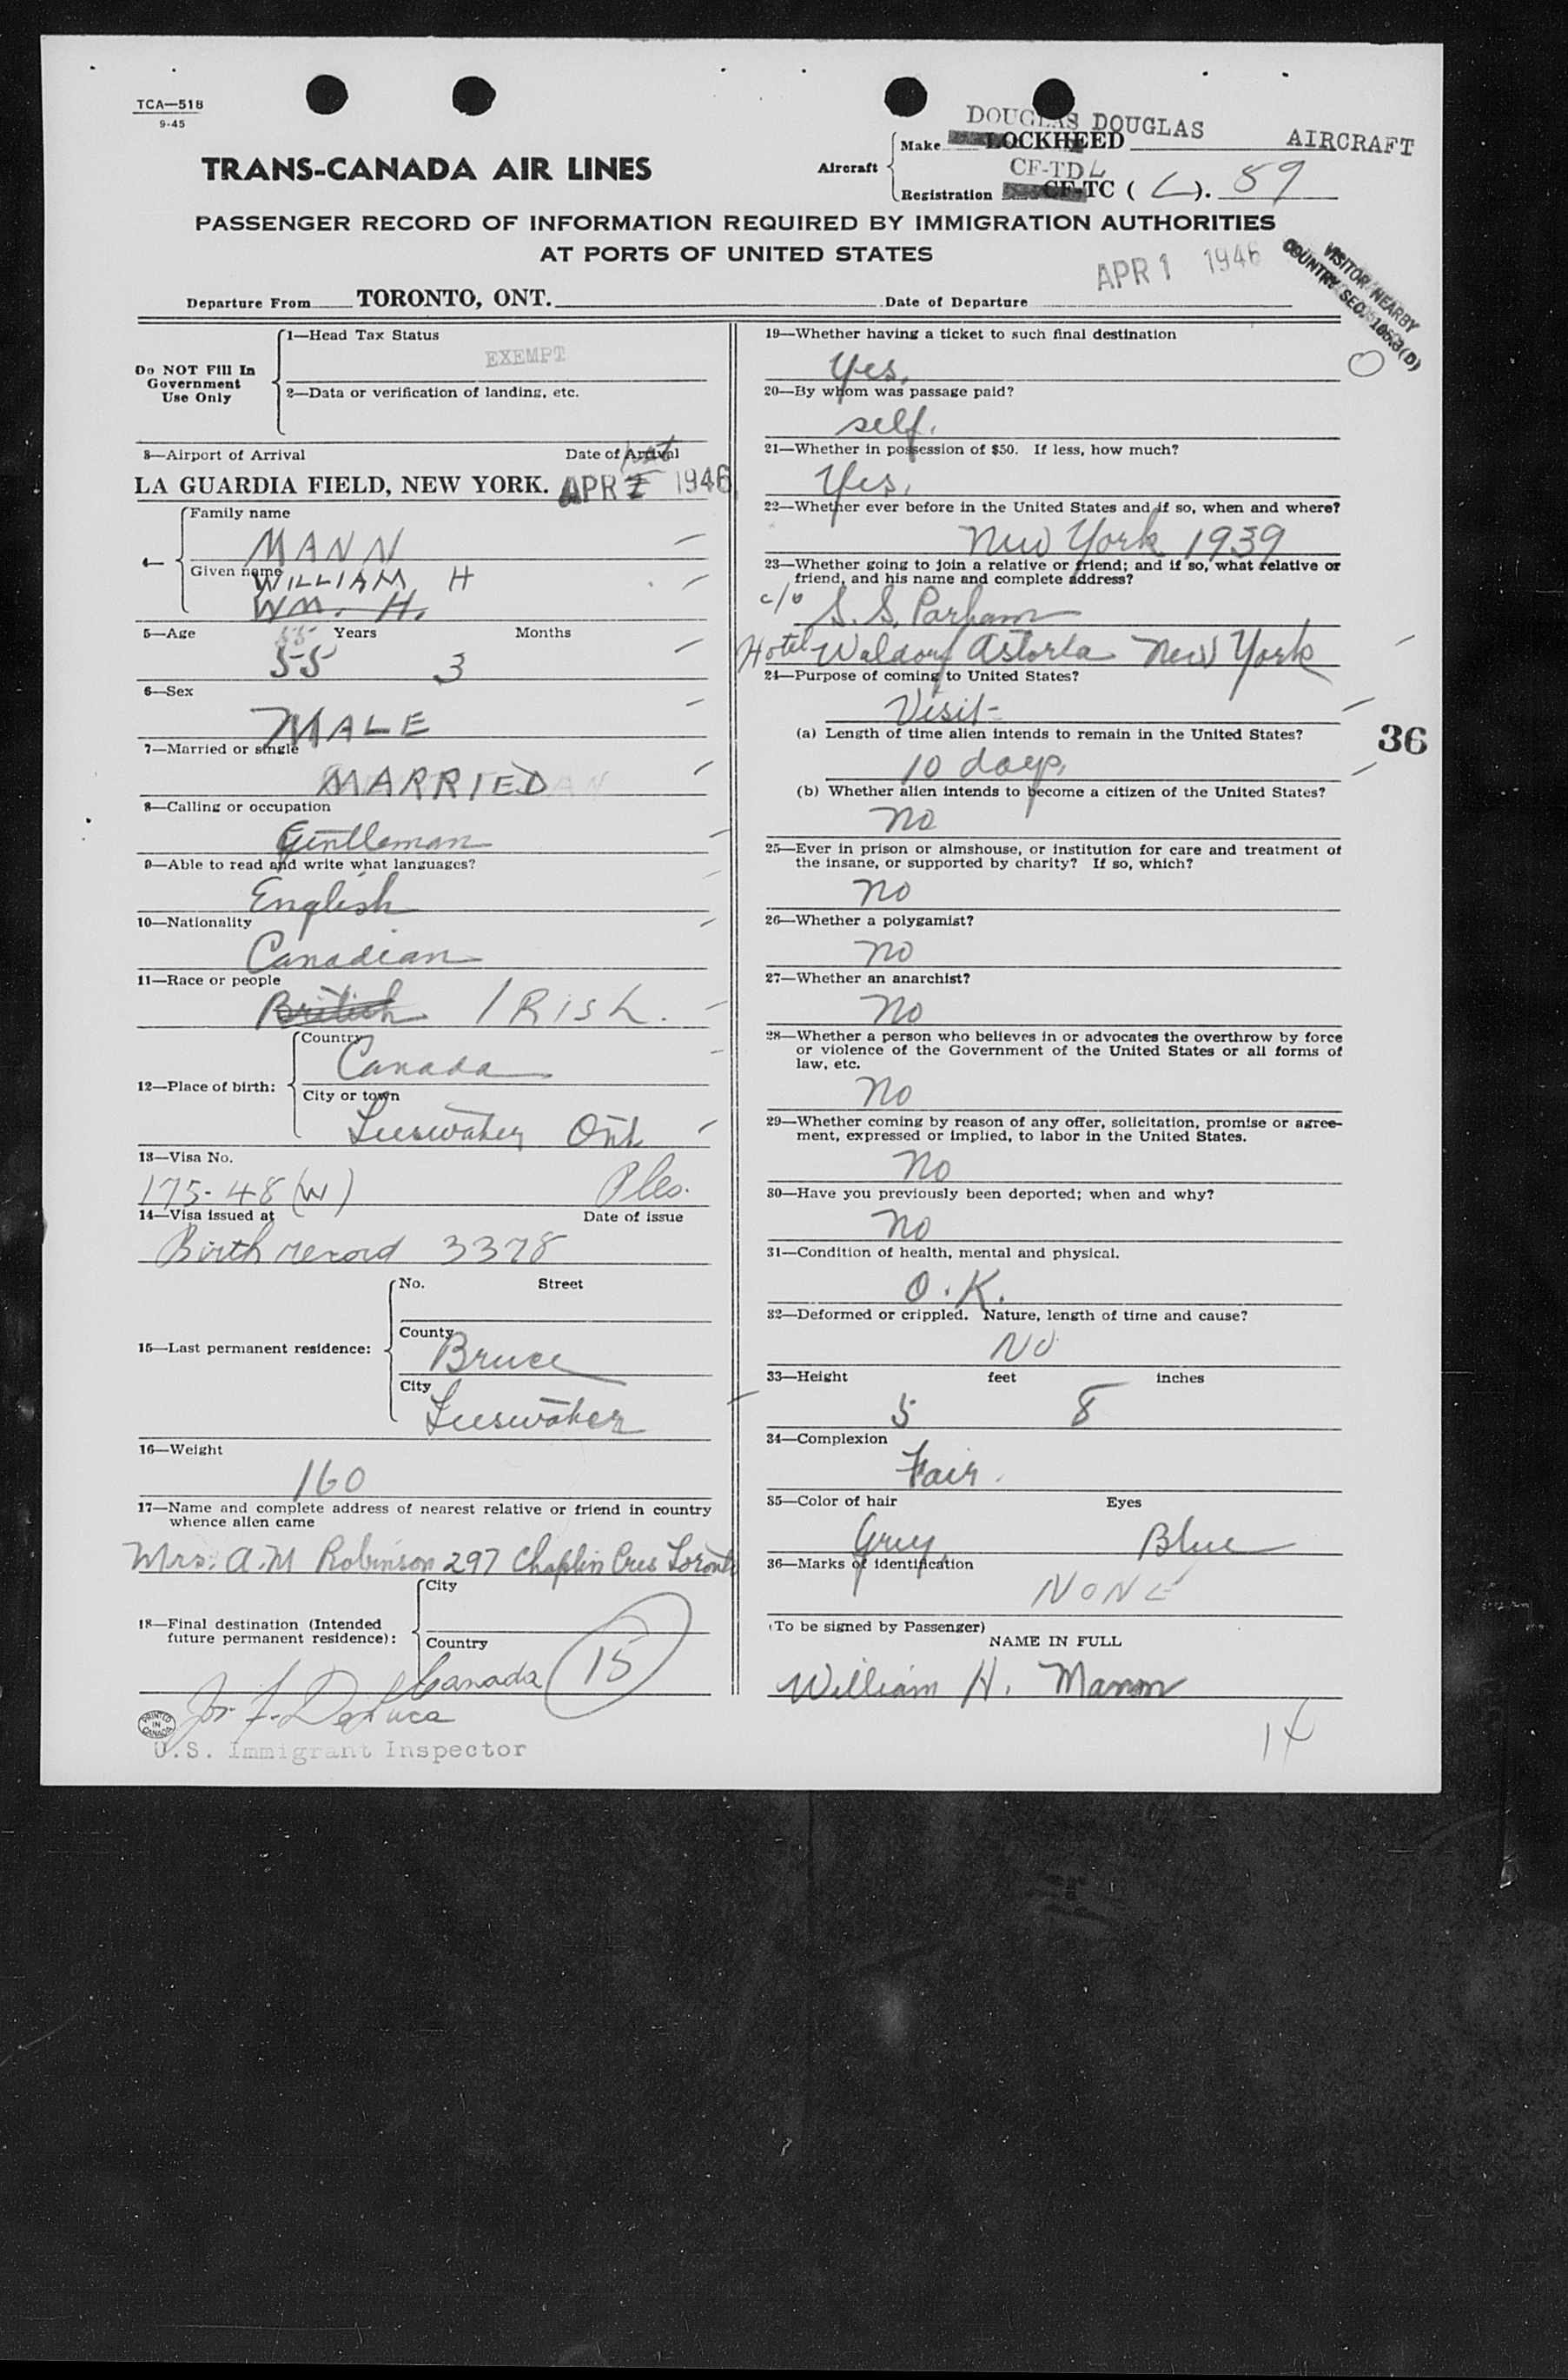 TCA—518
9-45
DOUGLAS DOUGLAS AIRCRAFT
Make LOCKHEED
TRANS-CANADA AIR LINES
Aircraft
CF-TDL
Registration CF-TC ( L ). 59
PASSENGER RECORD OF INFORMATION REQUIRED BY IMMIGRATION AUTHORITIES
AT PORTS OF UNITED STATES
APR 1 1946
VISITOR NEARBY
COUNTRY SEC. 105.3(D)
Departure From TORONTO, ONT. Date of Departure
Do NOT Fill In
Government
Use Only
1—Head Tax Status
EXEMPT
2—Data or verification of landing, etc.
3—Airport of Arrival Date of Arrival
LA GUARDIA FIELD, NEW YORK. APR 1 1946
4—
Family name
MANN
Given name
WILLIAM H
WM. H.
5—Age Years Months
55 3
6—Sex
MALE
7—Married or single
MARRIED
8—Calling or occupation
Gentleman
9—Able to read and write what languages?
English
10—Nationality
Canadian
11—Race or people
British IRISH.
12—Place of birth:
Country
Canada
City or town
Teeswater Ont
13—Visa No.
175-48 (W)
14—Visa issued at Date of issue
Birth record 3378
15—Last permanent residence:
No. Street
County
Bruce
City
Teeswater
16—Weight
160
17—Name and complete address of nearest relative or friend in country
whence alien came
Mrs. A.M Robinson 297 Chaplin Cres Toronto
18—Final destination (Intended
future permanent residence):
City
Country
Canada 15
Jos. F. DeLuca
PRINTED
IN
CANADA
U.S. Immigrant Inspector
19—Whether having a ticket to such final destination
Yes,
20—By whom was passage paid?
self.
21—Whether in possession of $50. If less, how much?
Yes,
22—Whether ever before in the United States and if so, when and where?
New York 1939
23—Whether going to join a relative or friend; and if so, what relative or
friend, and his name and complete address?
c/o S. S. Parham
Hotel Waldorf Astoria New York
24—Purpose of coming to United States?
Visit-
36
(a) Length of time alien intends to remain in the United States?
10 days,
(b) Whether alien intends to become a citizen of the United States?
no
25—Ever in prison or almshouse, or institution for care and treatment of
the insane, or supported by charity? If so, which?
no
26—Whether a polygamist?
no
27—Whether an anarchist?
No
28—Whether a person who believes in or advocates the overthrow by force
or violence of the Government of the United States or all forms of
law, etc.
No
29—Whether coming by reason of any offer, solicitation, promise or agree-
ment, expressed or implied, to labor in the United States.
No
30—Have you previously been deported; when and why?
no
31—Condition of health, mental and physical.
O.K.
32—Deformed or crippled. Nature, length of time and cause?
NO
33—Height feet inches
5 8
34—Complexion
Fair.
35—Color of hair Eyes
Grey, Blue
36—Marks of identification
NONE
(To be signed by Passenger)
NAME IN FULL
William H. Mann
14